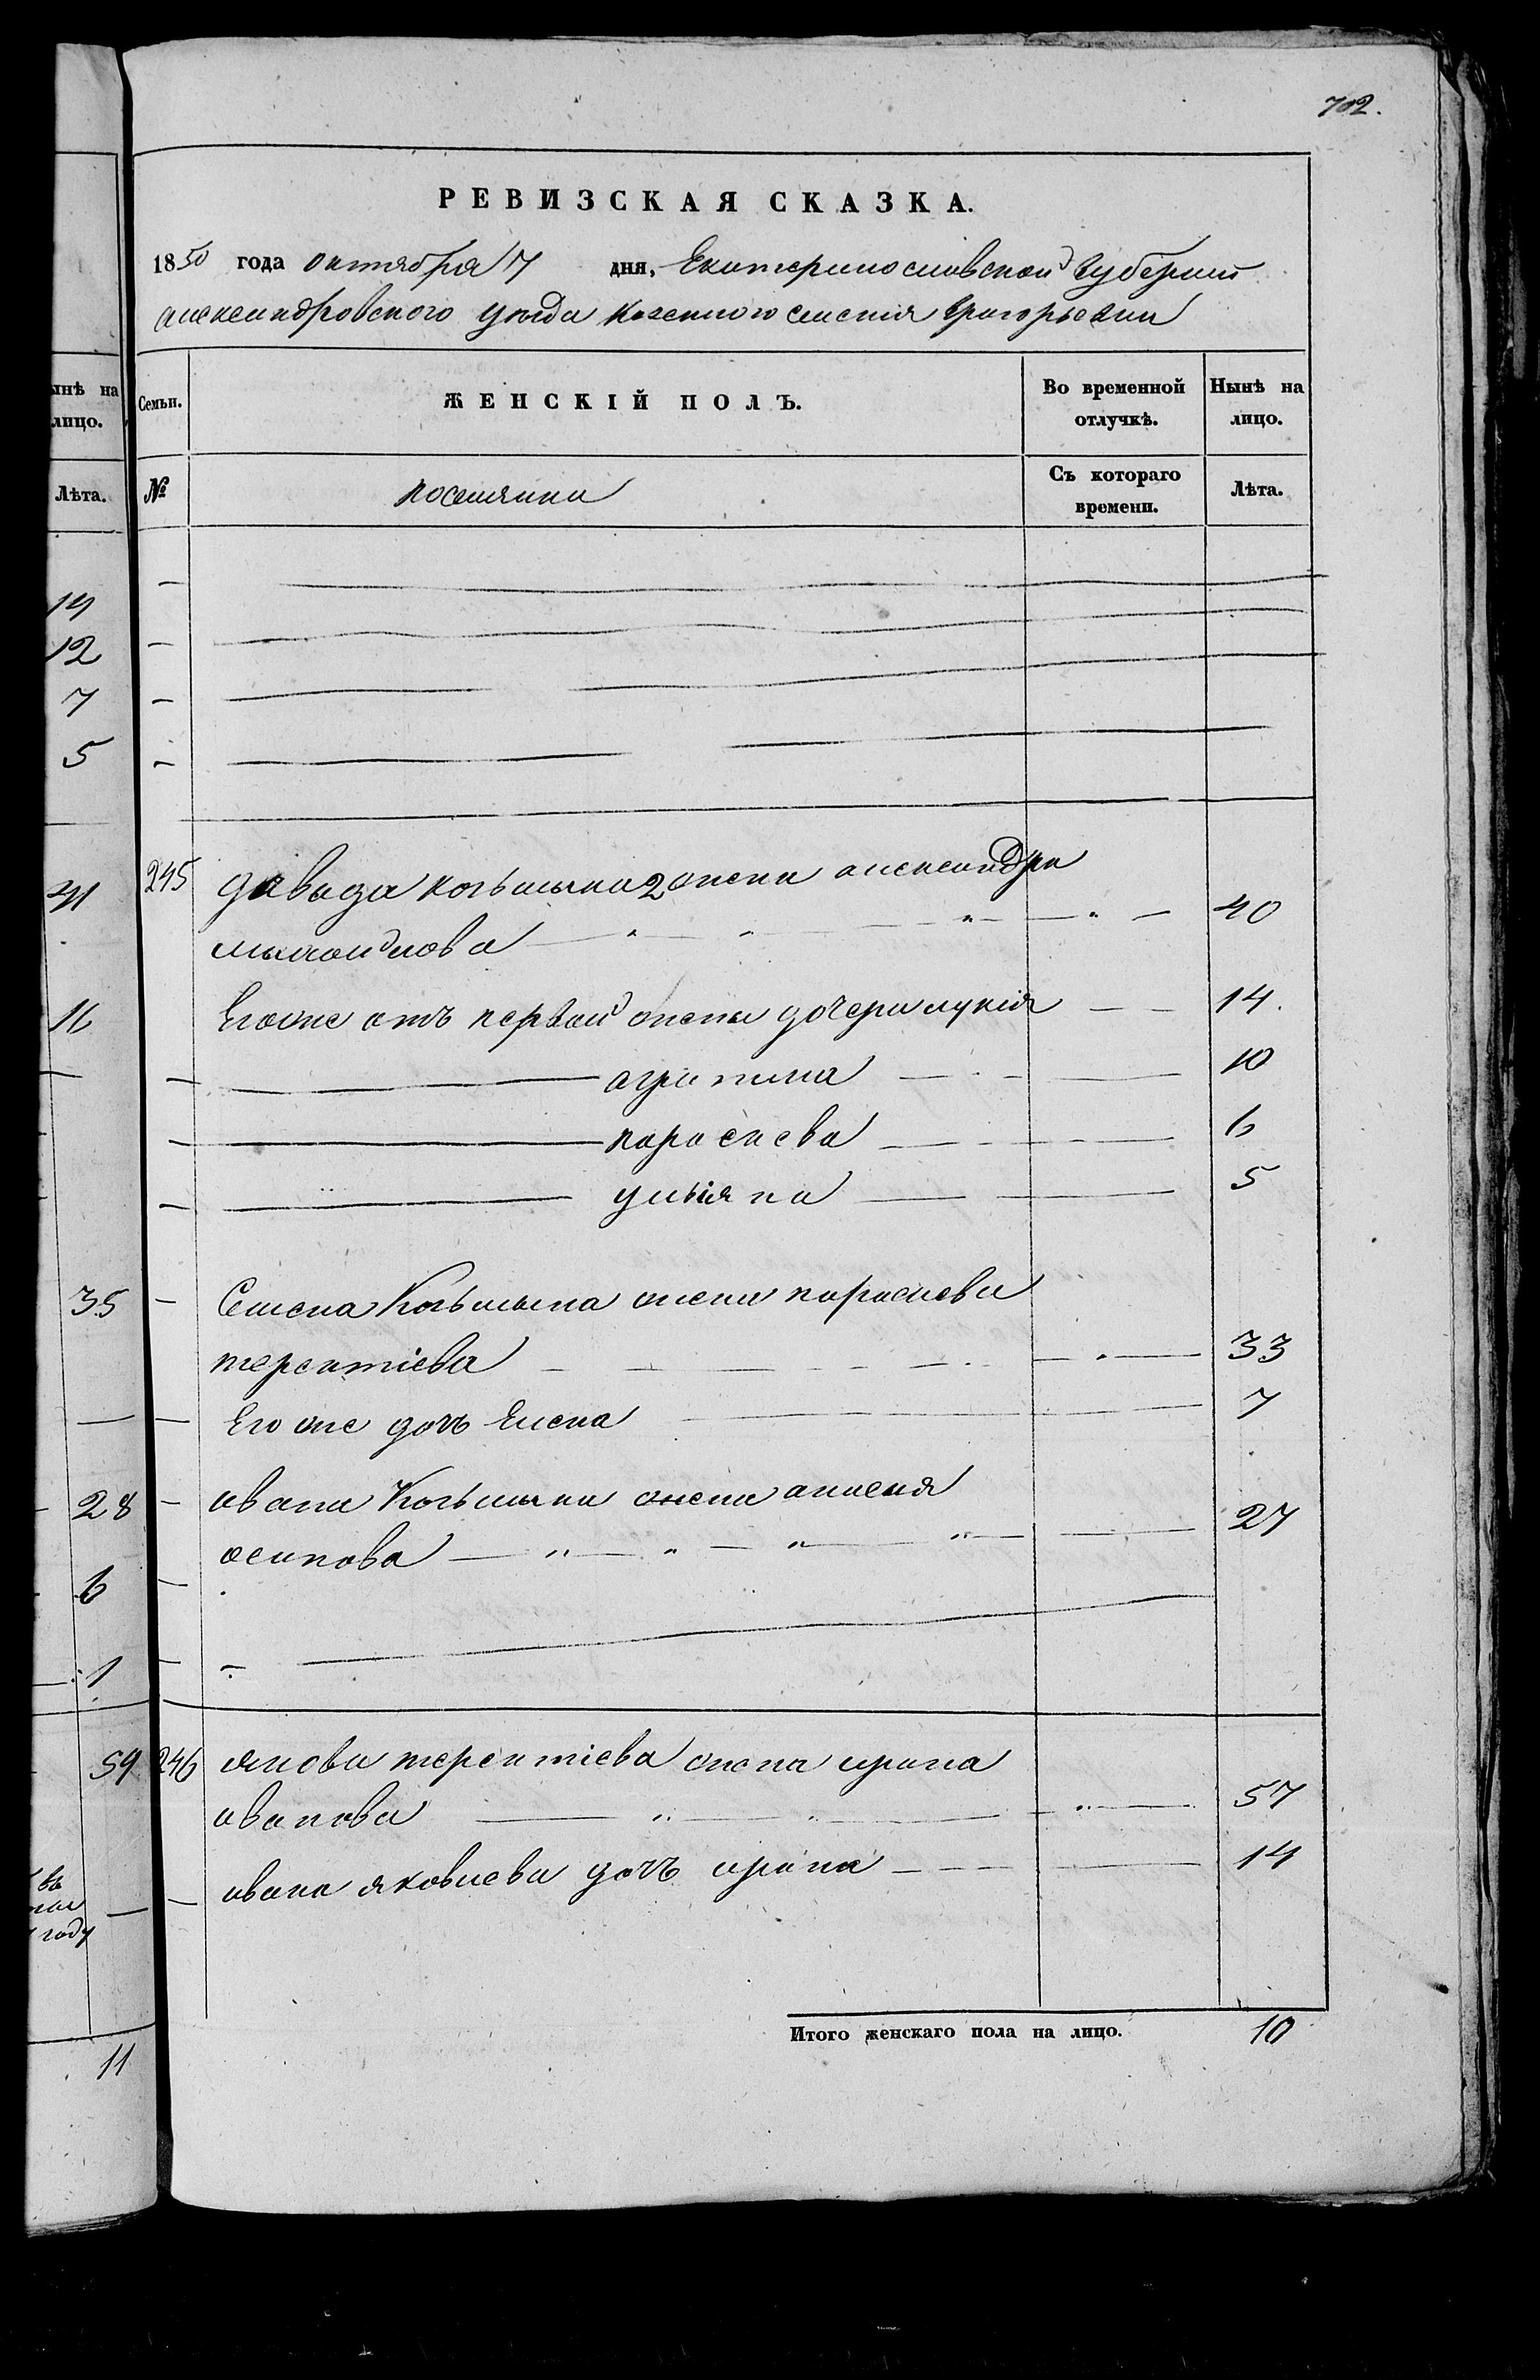 702.
РЕВИЗСКАЯ СКАЗКА.
1850 года октября 7 дня, Екатеринославской губернии
александровского уезда казенного селения Григорьевки
ынѣ на лицо.
Семьи.
ЖЕНСКІЙ ПОЛЪ.
Во временной отлучкѣ.
Нынѣ на лицо.
Лѣта.
№
поселянки
Съ котораго времени.
Лѣта.
14
12
7
5
245 давыда козьмина 2 жена александра
михайлова 40
16 Его же отъ первой жены дочери лукія 14.
агрипина 10
параскева 6
ульіяна 5
35 Семена Козьмина жена параскева
терентіева 33
Его же дочь Елена 7
28 ивана Козьмина жена аксенія
осипова 27
6
1
59 246 якова терентіева жена ирина
иванова 57
ивана яковлева дочь ирина 14
въ
году
11
Итого женскаго пола на лицо. 10